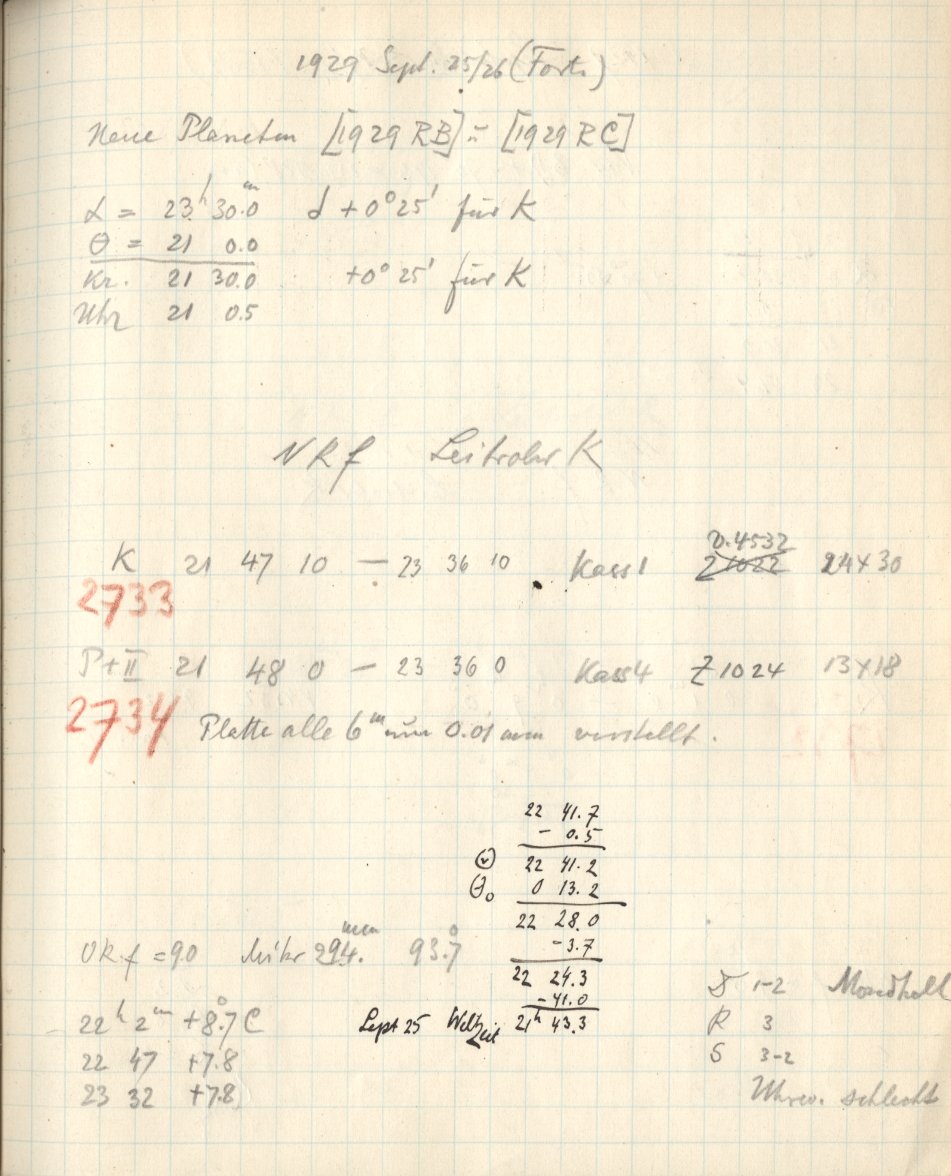 1929 Sept. 25/26 (Forts.)
Neue Planeten [1929 RB] = [1929 RC]
α = 23h 30.0m δ + 0° 25' für K
θ = 21 0.0
Kr. 21 30.0 +0° 25' für K
Uhr 21 0.5
NRf Leitrohr K
K 21 47 10 – 23 36 10 Kass 1 Z.4532 24×30
2733
P+II 21 48 0 – 23 36 0 Kass 4 Z 1024 13×18
2734 Platte alle 6m um 0.01 mm verstellt.
22 41.7
– 0.5
22 41.2
θ₀ 0 13.2
22 28.0
– 3.7
22 24.3
– 41.0
Sept 25 Weltzeit 21h 43.3
ORf = 90 Mikr 294.mm 93.°7
22h 2m +8.°7 C
22 47 +7.8
23 32 +7.8
1–2 Mondhell
R 3
S 3–2
Uhrw. schlecht